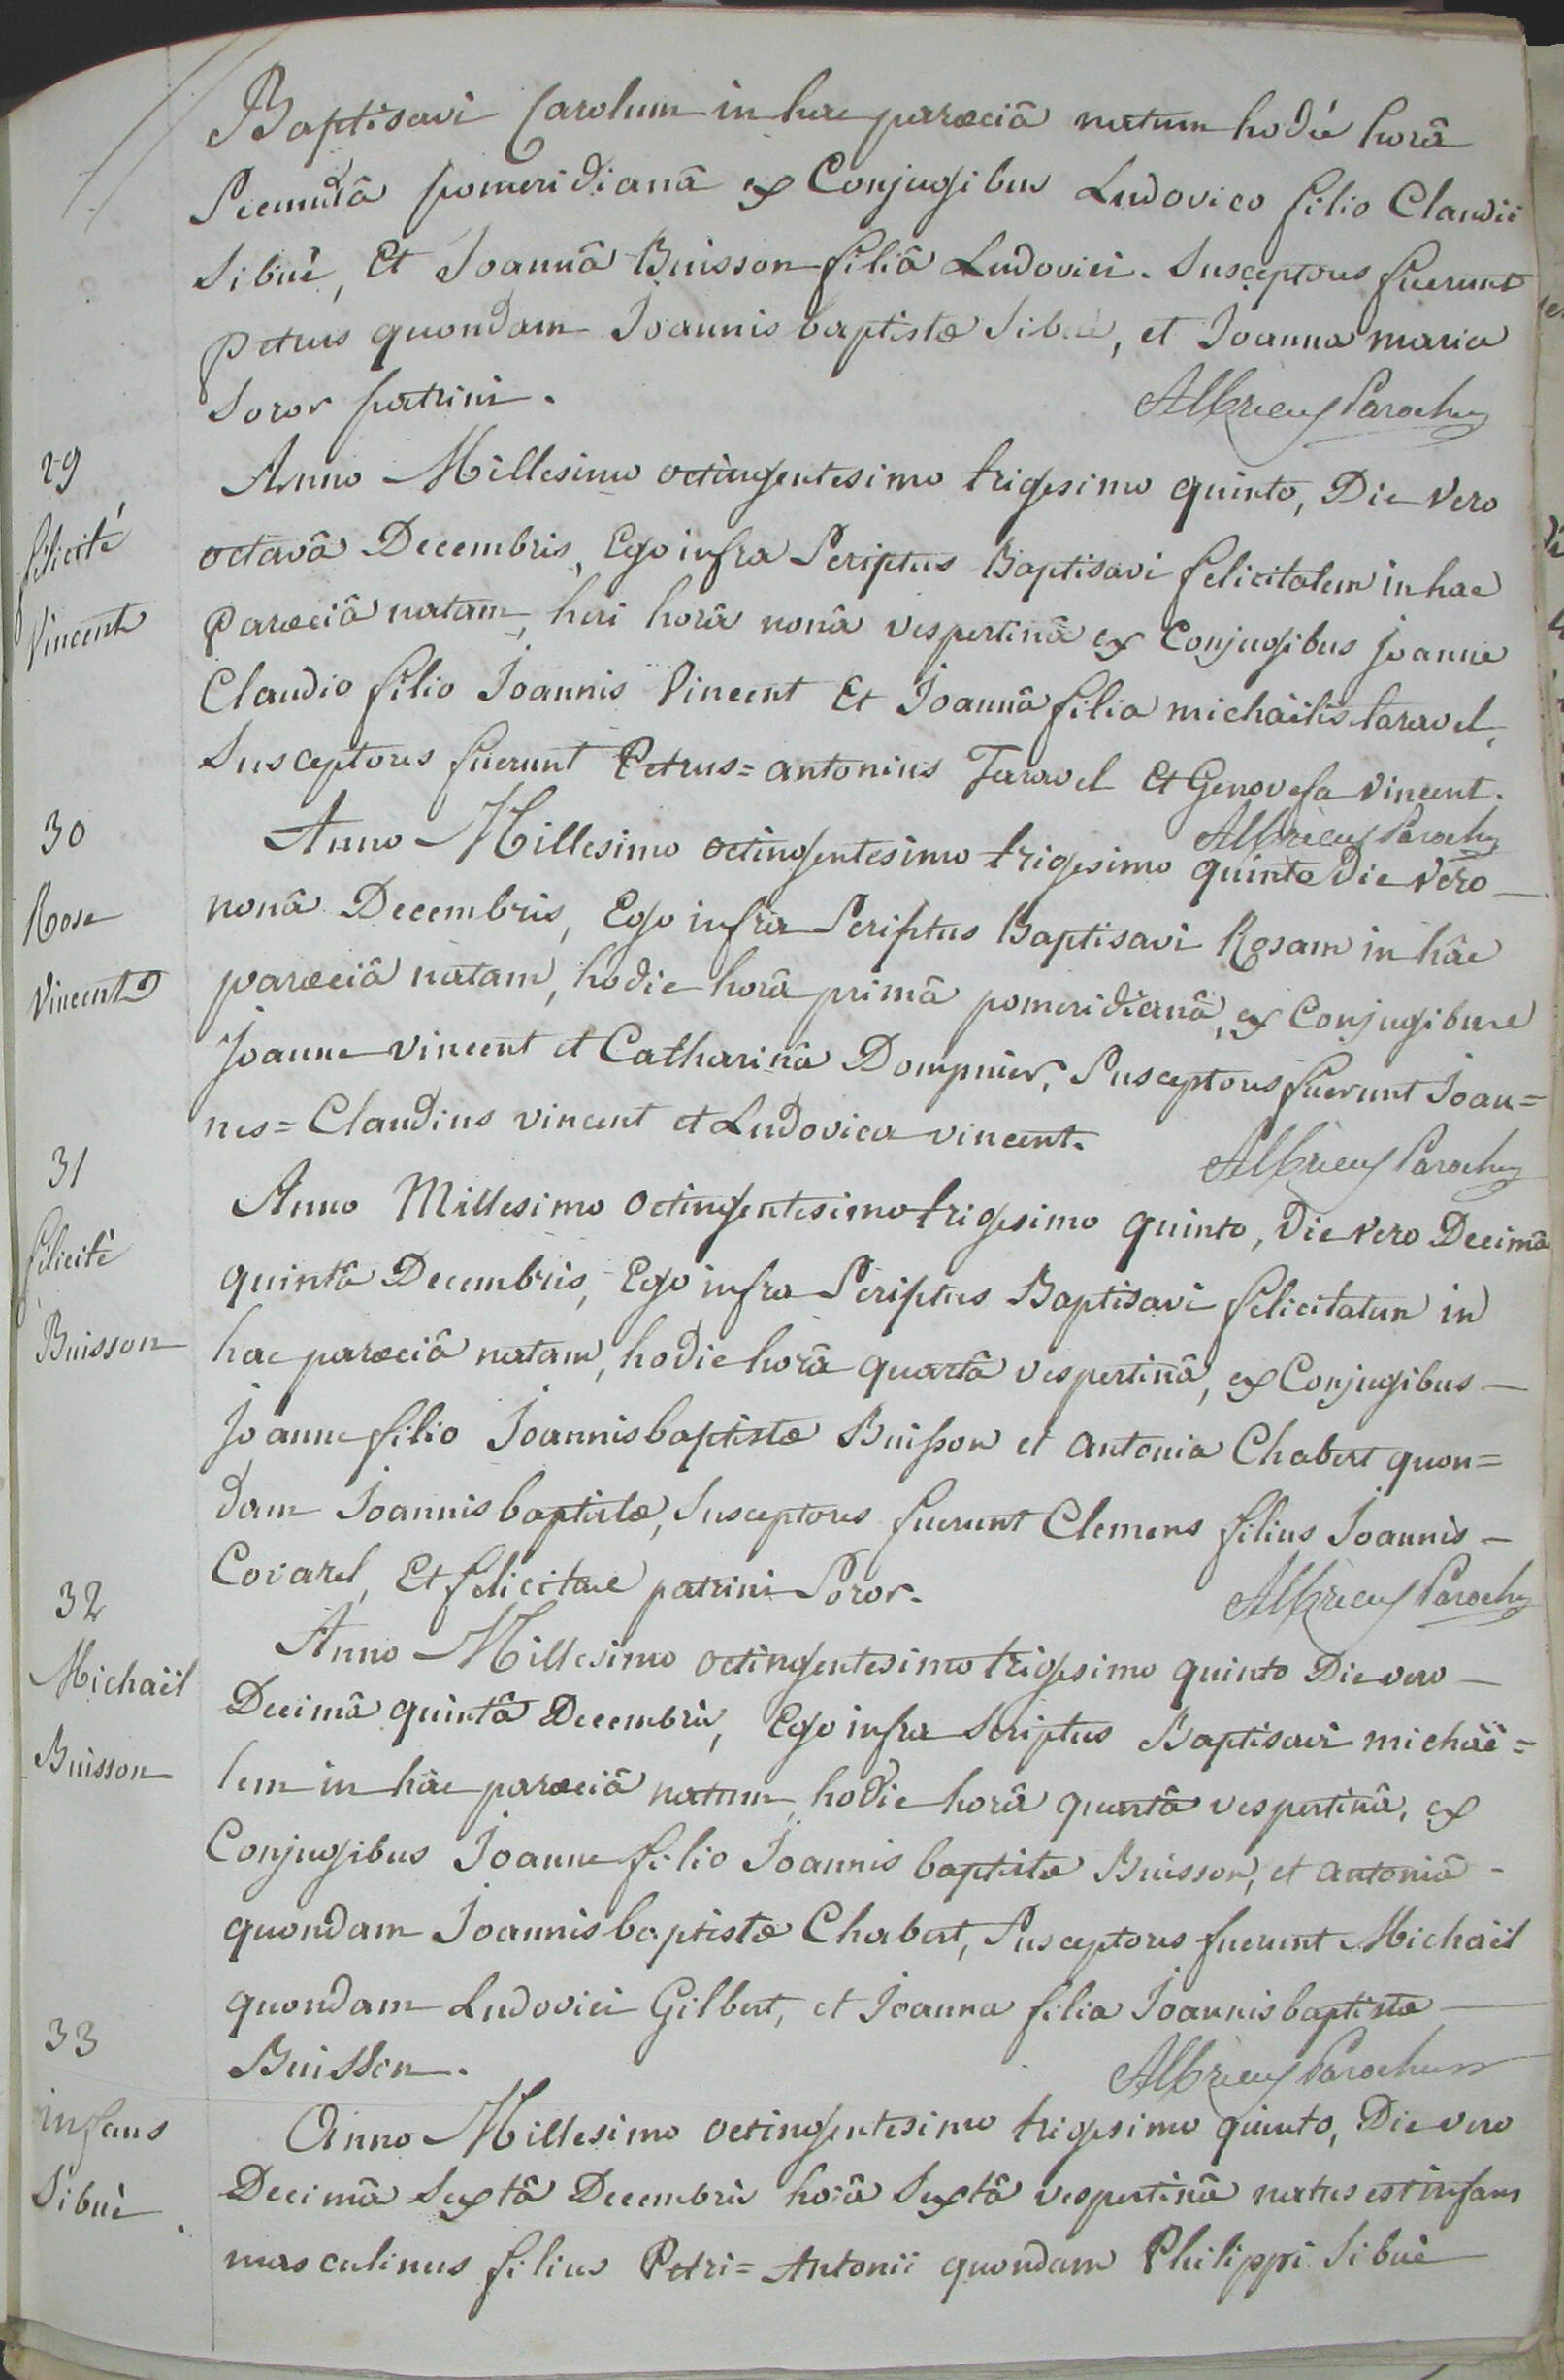 Baptisavi Carolum in hac parœciâ natum hodiè horâ
Secundâ pomeridianâ ex Conjugibus Ludovico filio Claudii
Sibuè, Et Joannâ Buisson filiâ Ludovici. Susceptores fuerunt
petrus quondam Joannis baptistæ Sibuè, et Joanna maria
Soror patrini.
Albrieux Parochus
29
felicité
Vincent
Anno Millesimo octingentesimo trigesimo quinto, Die Vero
octavâ Decembris, Ego infra Scriptus Baptisavi felicitatem in hac
parœciâ natam, heri horâ nonâ vespertinâ ex Conjugibus Joanne
Claudio filio Joannis Vincent Et Joannâ filia michaëlis taravel,
Susceptores fuerunt Petrus=antonius Taravel Et Genovefa Vincent.
Albrieux Parochus
30
Rose
Vincent
Anno Millesimo octingentesimo trigesimo quinto Die Vero
nonâ Decembris, Ego infra Scriptus Baptisavi Rosam in hâc
parœciâ natam, hodie horâ primâ pomeridianâ, ex Conjugibus
Joanne vincent et Catharinâ Dompnier, Susceptores fuerunt Joan=
nes=Claudius vincent et Ludovica vincent.
Albrieux Parochus
31
felicité
Buisson
Anno Millesimo Octingentesimo trigesimo quinto, Die vero Decimâ
quintâ Decembris, Ego infra Scriptus Baptisavi felicitatem in
hac parœciâ natam, hodie horâ quartâ vespertinâ, ex Conjugibus
Joanne filio Joannis baptistæ Buisson et antonia Chabert quon=
dam Joannis baptistæ, Susceptores fuerunt Clemens filius Joannis
Covarel, Et felicitas patrini Soror.
Albrieux Parochus
32
Michaël
Buisson
Anno Millesimo octingentesimo trigesimo quinto Die vero
Decimâ quintâ Decembris, Ego infra Scriptus Baptisavi michaë=
lem in hâc parœciâ natum, hodie horâ quartâ vespertinâ, ex
Conjugibus Joanne filio Joannis baptistæ Buisson, et antoniâ
quondam Joannis baptistæ Chabert, Susceptores fuerunt Michaël
quondam Ludovici Gilbert, et Joanna filia Joannis baptistæ
Buisson.
Albrieux Parochus
33
infans
Sibuè
Anno Millesimo octingentesimo trigesimo quinto, Die vero
Decimâ Sextâ Decembris horâ Sextâ vespertinâ natus est infans
masculinus filius Petri=Antonii quondam Philippi Sibuè